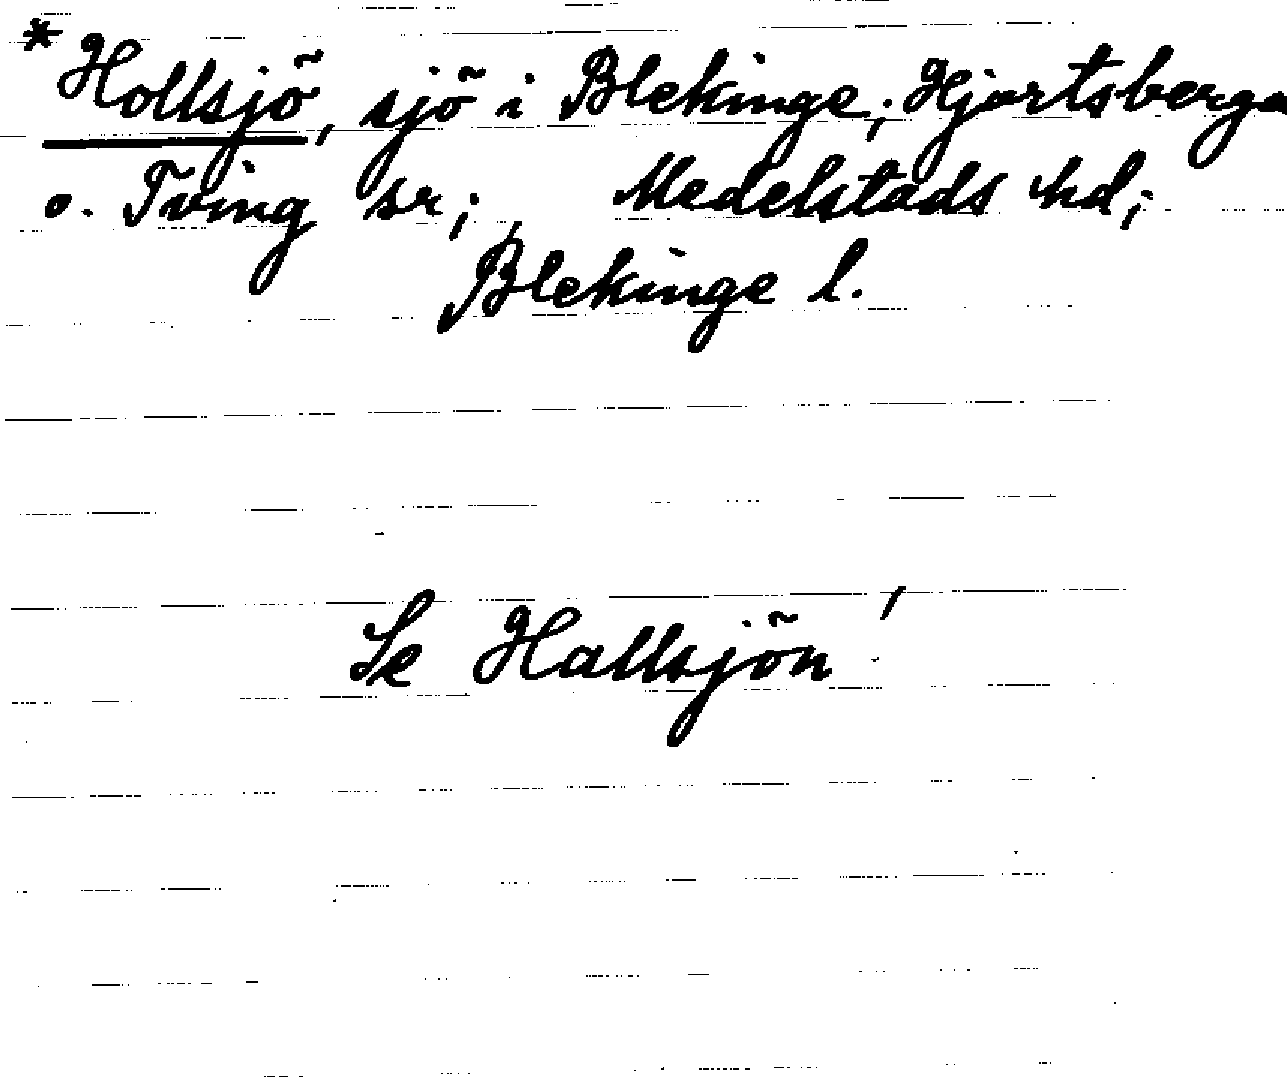 *Hollsjö, sjö i Blekinge; Hjortsberga
o. Tving sr; Medelstads hd;
Blekinge l.
Se Hallsjön